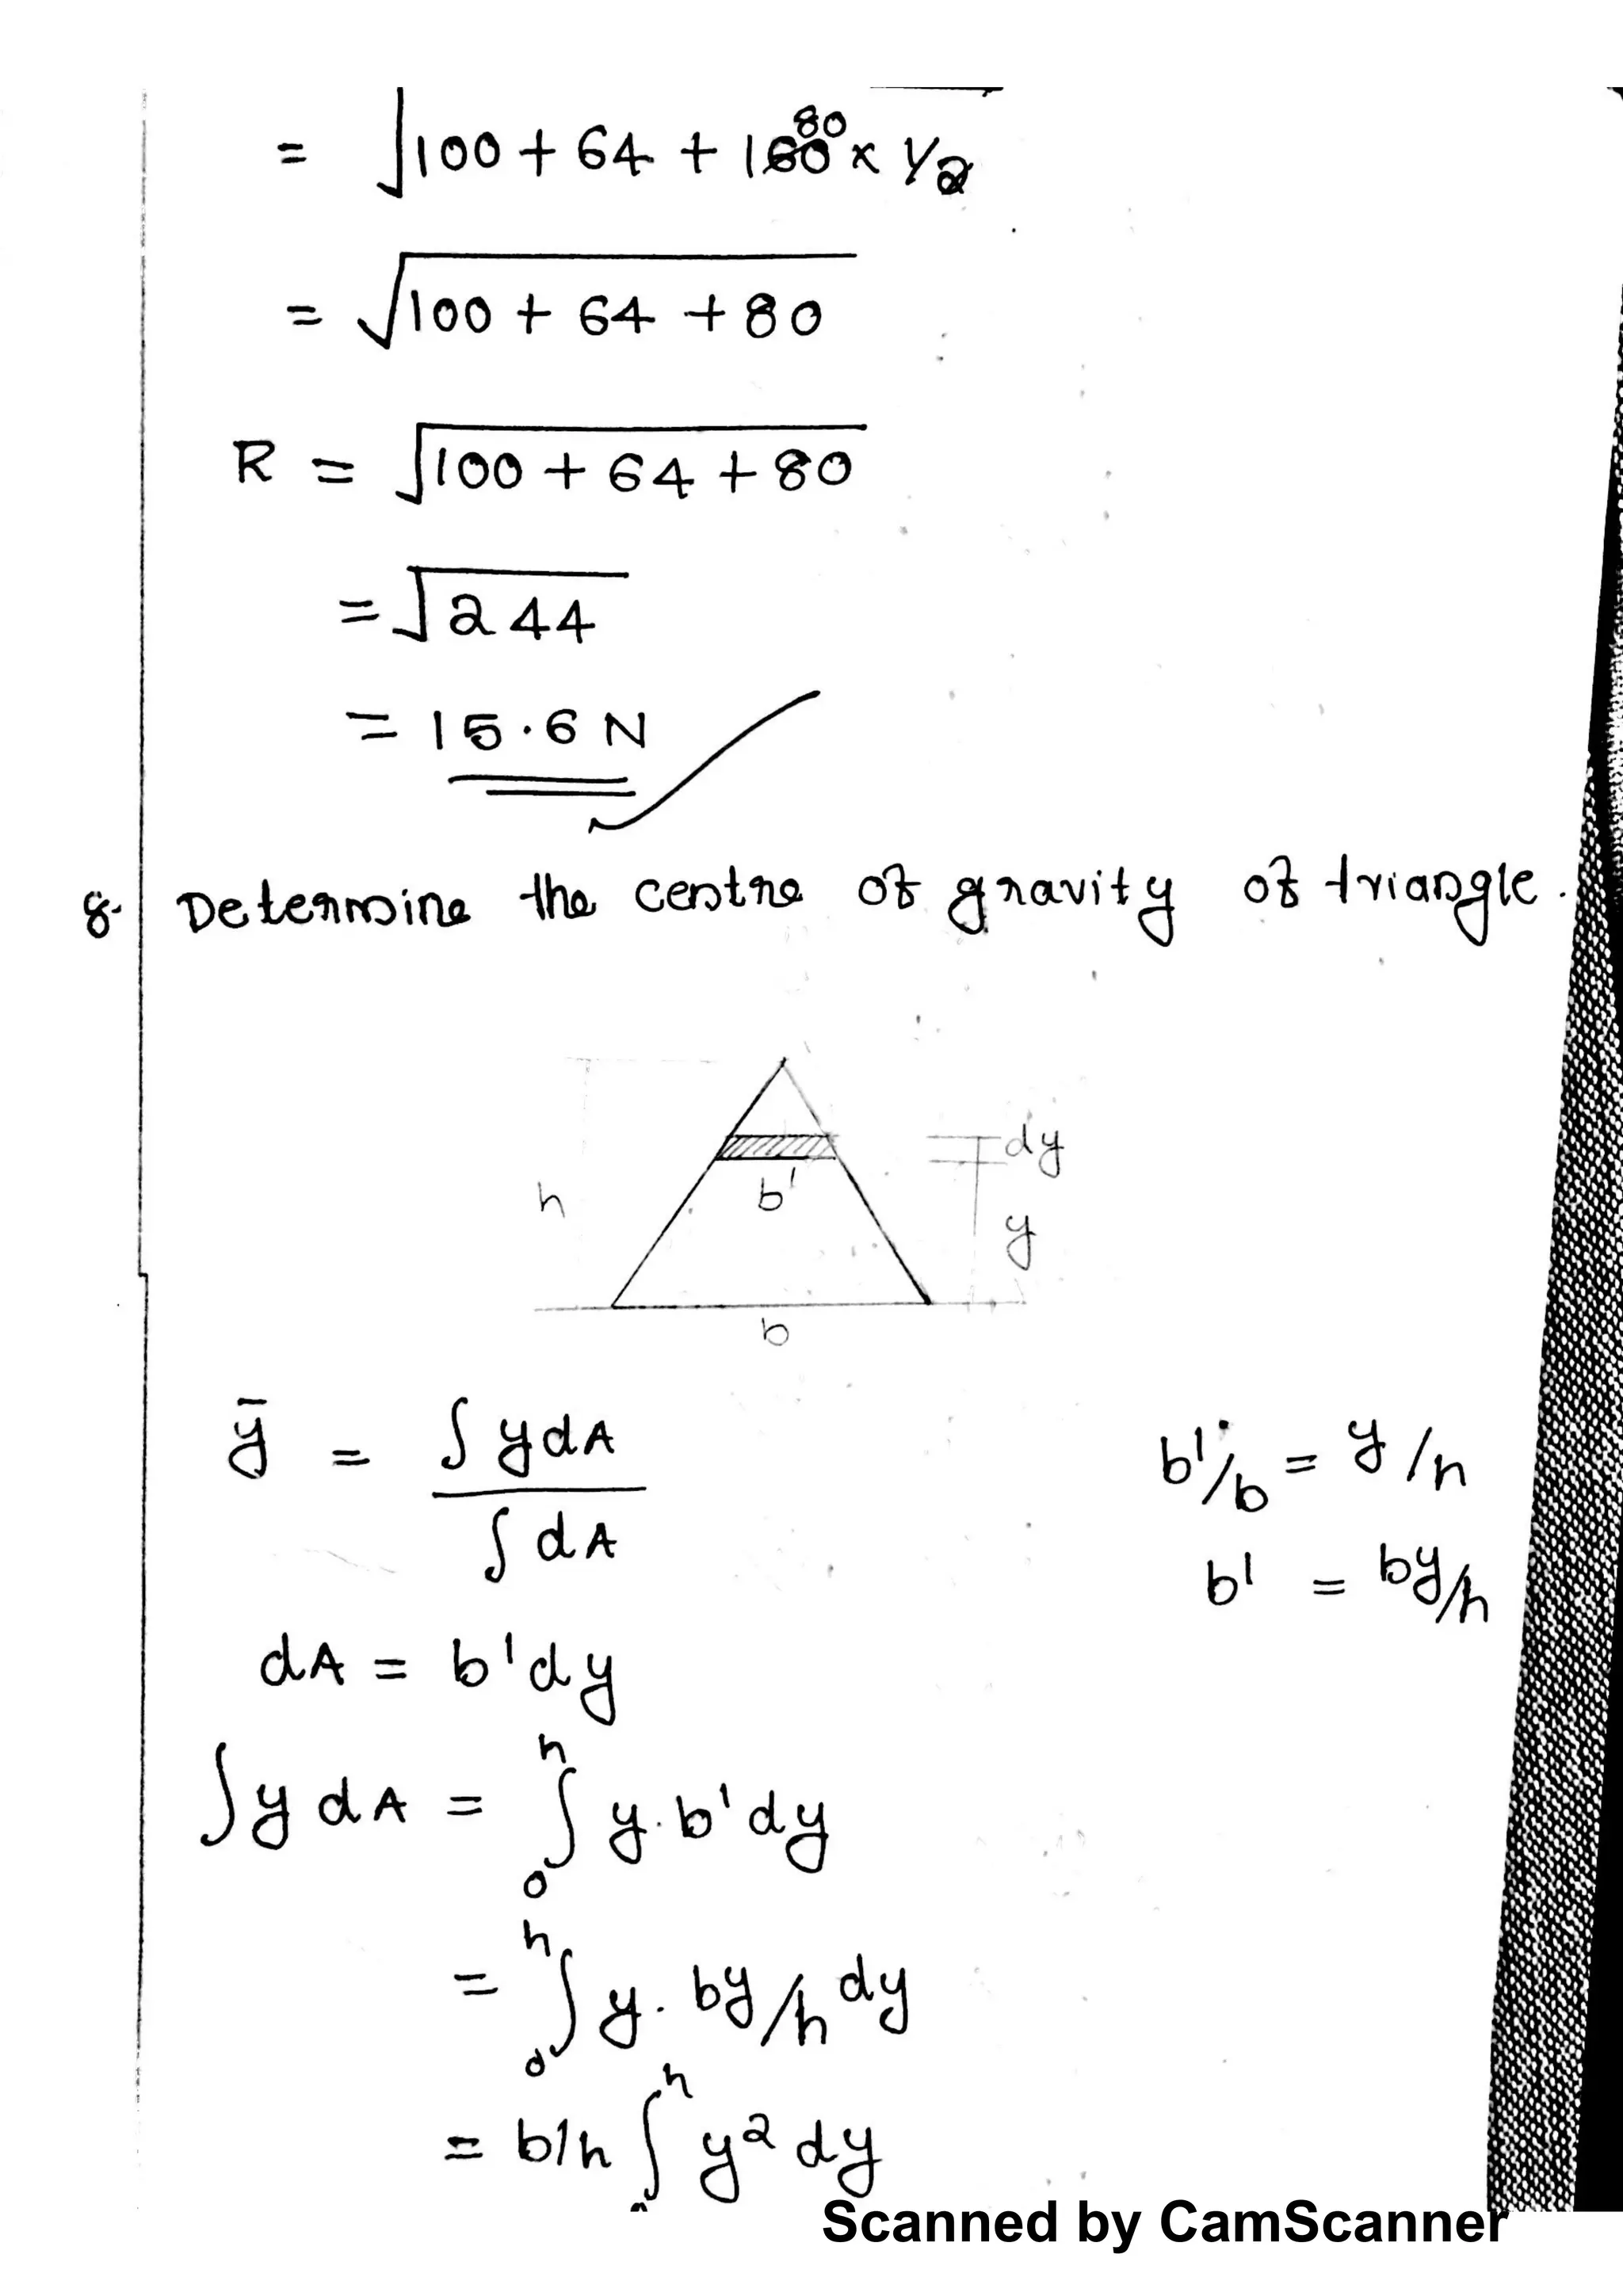 = √100 + 64 + 160 80 x 1/2
= √100 + 64 + 80
R = √100 + 64 + 80
= √244
= 15.6 N
8. Determine the centre of gravity of triangle.
dy
h b' y
b
ȳ = ∫ydA / ∫dA
b'/b = y/h
b' = by/h
dA = b'dy
∫y dA = ∫₀ʰ y.b'dy
= ∫₀ʰ y. by/h dy
= b/h ∫ʰ y² dy
Scanned by CamScanner